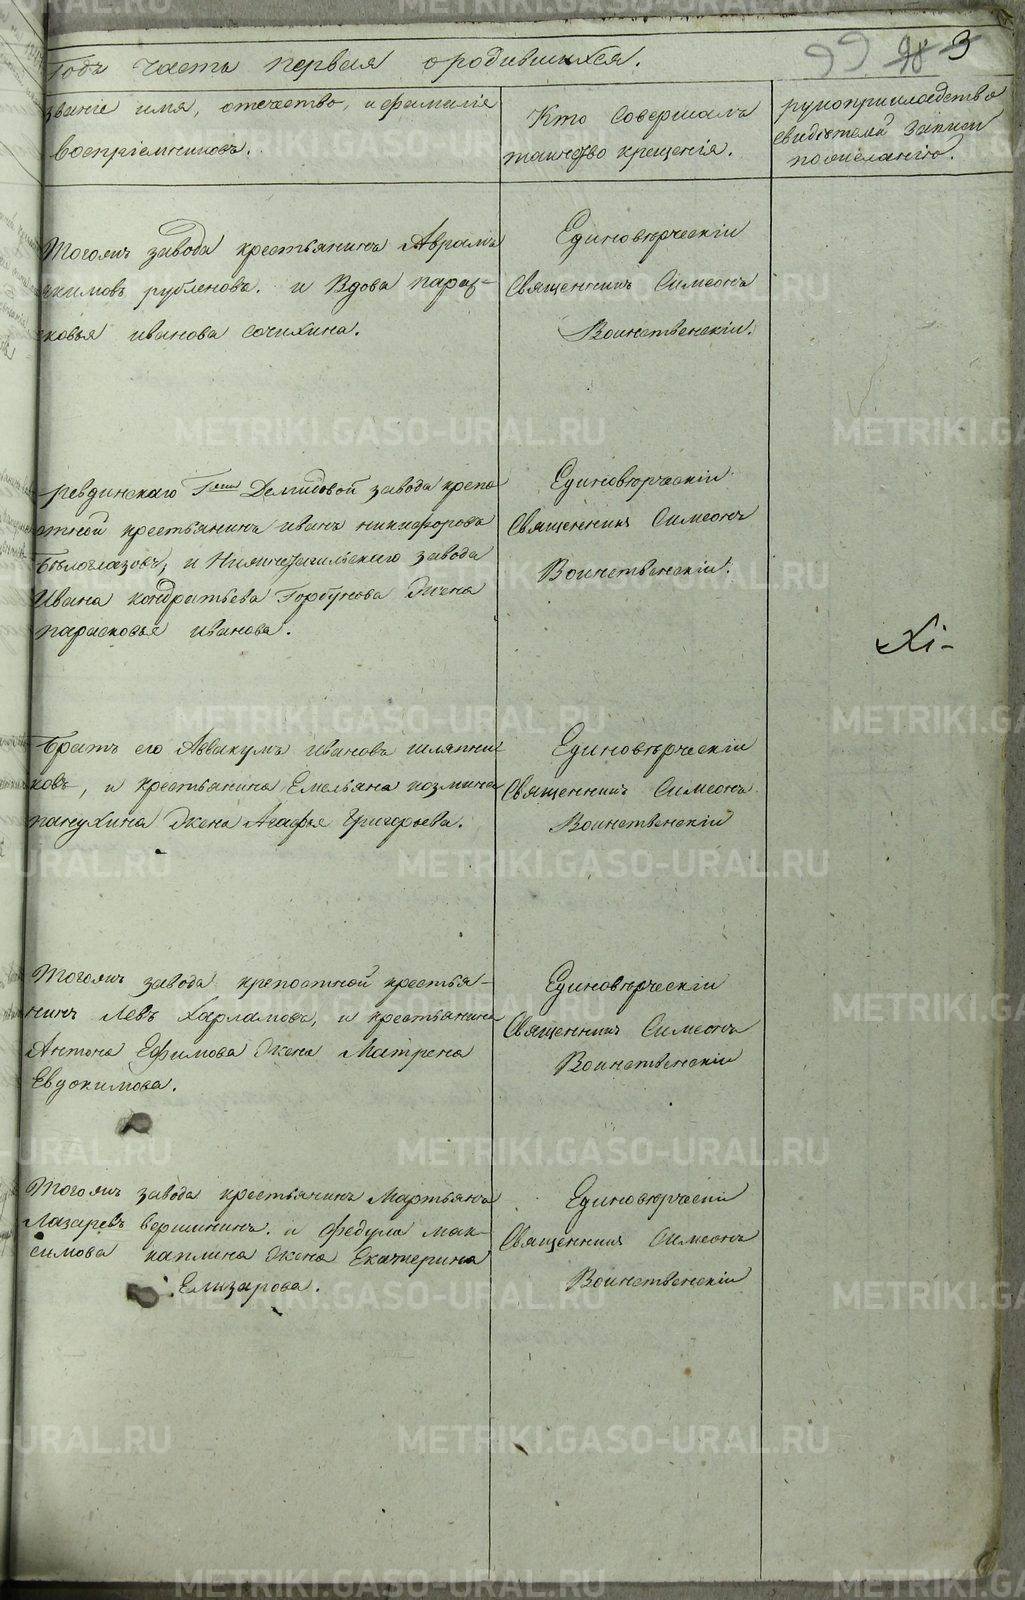 Годъ часть первая о родившихся.
99 98 3
званіе имя, отечество, и фамиліе
воспріемниковъ.
Кто совершалъ
таинство крещенія.
рукоприкладство
свидѣтелей записи
по желанію.
Тогожъ завода крестьянинъ Аврамъ
якимовъ рубленовъ. и Вдова парас-
ковья иванова сочихина.
Единовѣрческій
Священникъ Симеонъ
Воинственскій.
ревдинскаго Г Демидовой завода крепо
стной крестьянинъ иванъ никифоровъ
Бѣлоглазовъ, и Нижнетагильскаго завода
Ивана кондратьева Горбунова Жена
парасковья иванова.
Единовѣрческій
Священникъ Симеонъ
Воинственскій.
Хі-
братъ его Аввакумъ ивановъ шляпни
ковъ, и крестьянина Емельяна козмина
панухина Жена Агафья Григорьева.
Единовѣрческій
Священникъ Симеонъ
Воинственскій
Тогожъ завода крепостной крестья-
нинъ Левъ Харламовъ, и крестьянина
Антона Ефимова Жена Матрена
Евдокимова.
Единовѣрческій
Священникъ Симеонъ
Воинственскій
Тогожъ завода крестьянинъ Мартьянъ
Лазаревъ вершининъ. и федула мак-
симова каплина Жена Екатерина
Елизарова.
Единовѣрческій
Священникъ Симеонъ
Воинственскій
METRIKI.GASO-URAL.RU